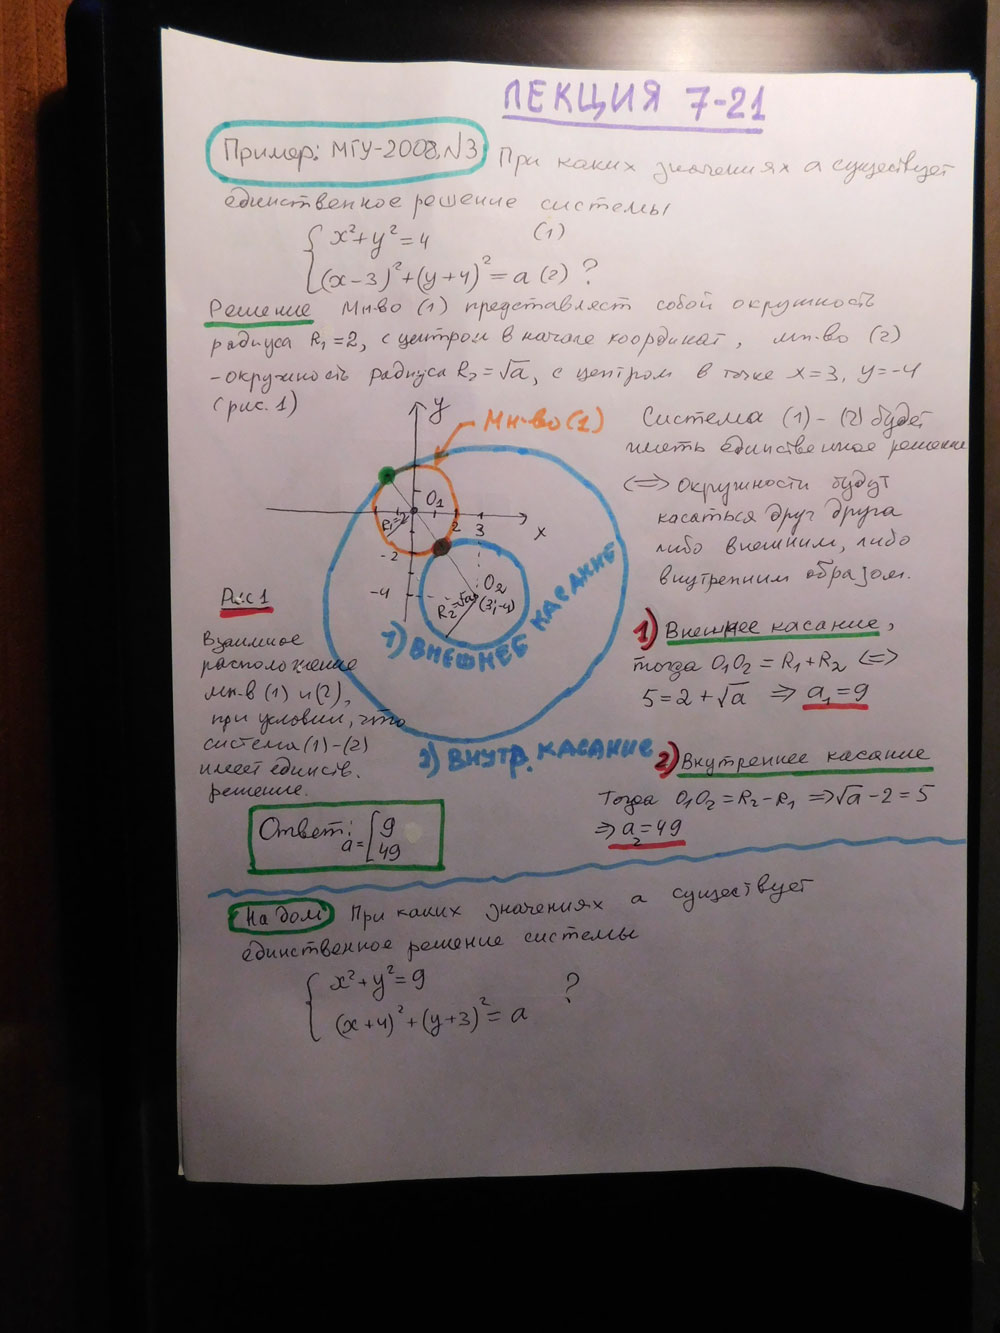 ЛЕКЦИЯ 7-21
Пример: МГУ-2008, N3 При каких значениях а существует
единственное решение системы
{ x²+y²=4 (1)
(x-3)²+(y+4)²=a (2) ?
Решение Мн-во (1) представляет собой окружность
радиуса R₁=2, с центром в начале координат, мн-во (2)
-окружность радиуса R₂=√a, с центром в точке x=3, y=-4
(рис. 1)
y
Мн-во (1)
O₁
R₁=2
2
3
x
-2
-4
O₂
(3;-4)
R₂=√a
1) ВНЕШНЕЕ КАСАНИЕ
2) ВНУТР. КАСАНИЕ
Рис 1
Взаимное
расположение
мн-в (1) и (2),
при условии, что
система (1)-(2)
имеет единств.
решение.
Система (1)-(2) будет
иметь единственное решение
<=> окружности будут
касаться друг друга
либо внешним, либо
внутренним образом.
1) Внешнее касание,
тогда O₁O₂=R₁+R₂ <=>
5=2+√a => a₁=9
2) Внутреннее касание
Тогда O₁O₂=R₂-R₁ => √a-2=5
=> a₂=49
Ответ: a=[ 9
49
На дом При каких значениях а существует
единственное решение системы
{ x²+y²=9 ?
(x+4)²+(y+3)²=a